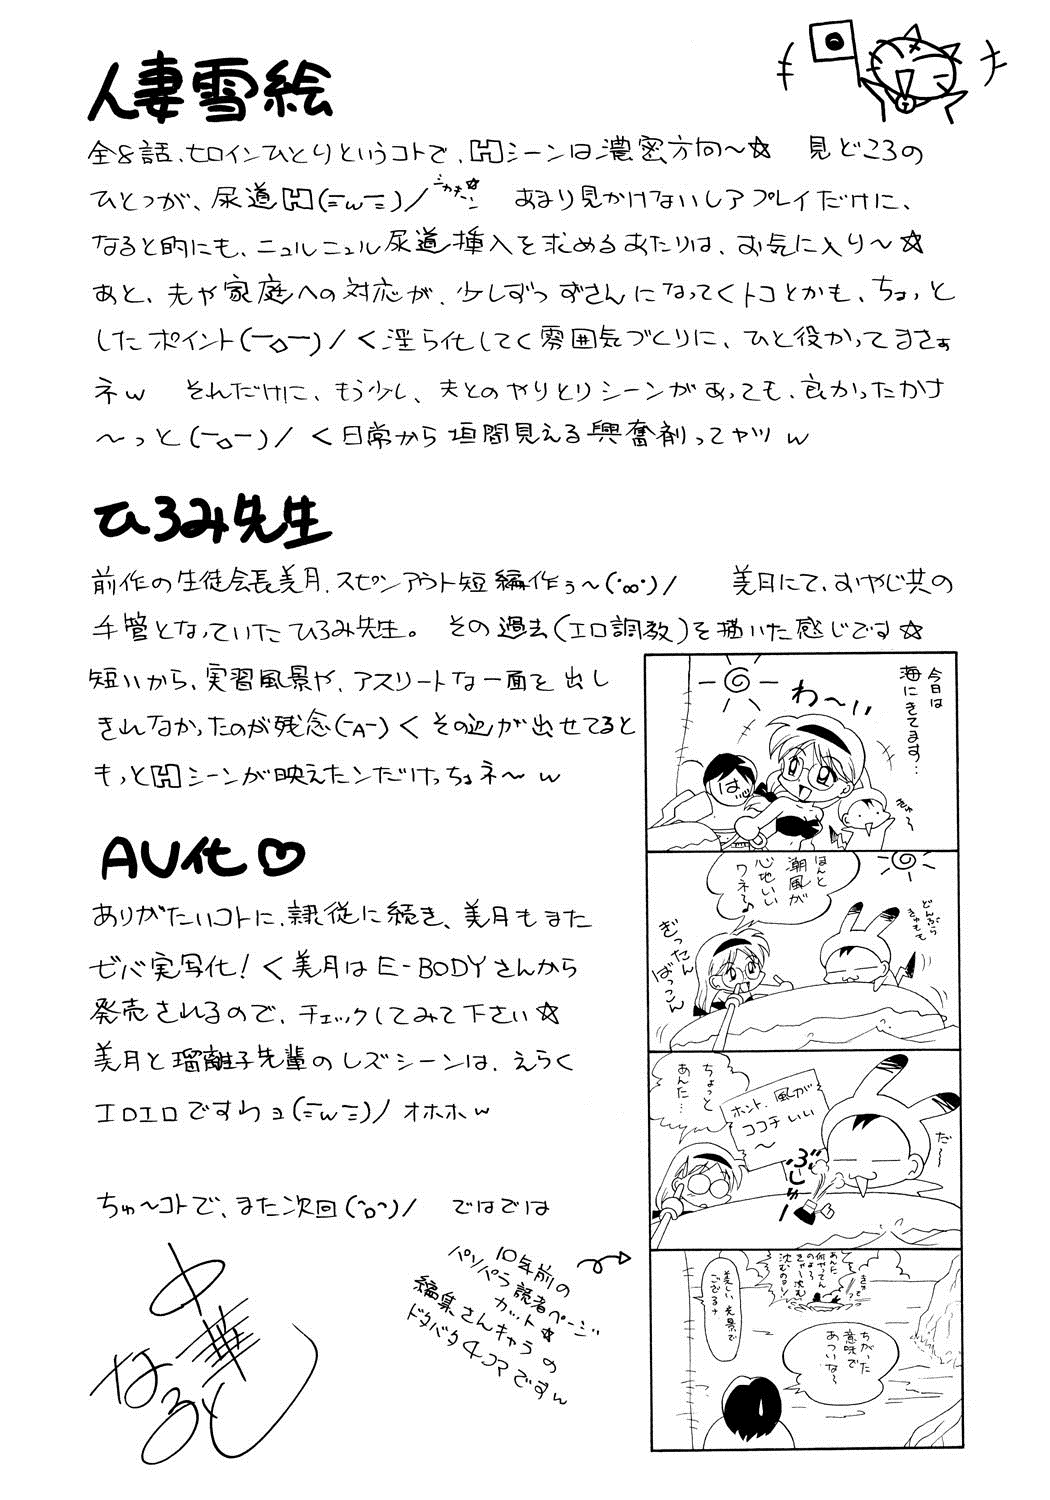 人妻雪絵
全8話、ヒロインひとりというコトで、Hシーンは濃密方向〜☆ 見どころの
ひとつが、尿道H(ﾆwﾆ)/ あまり見かけないレアプレイだけに、
なると的にも、ニュルニュル尿道挿入を求めるあたりは、お気に入り〜☆
あと、夫や家庭への対応が、少しずつずさんになってくトコとかも、ちょっと
したポイント(ー。ー)/ く淫ら化してく雰囲気づくりに、ひと役かってまさぁ
ネw それだけに、もう少し、夫とのやりとりシーンがあっても、良かったかナ
〜っと(ー。ー)/ く日常から垣間見える興奮剤ってヤツw
ひろみ先生
前作の生徒会長美月、スピンアウト短編作ぅ〜(・∞・)/ 美月にて、おやじ共の
手管となっていたひろみ先生。 その過去(エロ調教)を描いた感じです☆
短いから、実習風景や、アスリートな一面を出し
きれなかったのが残念(ーAー) くその辺が出せてると
もっとHシーンが映えたンだけっちょネ〜w
AV化♡
ありがたいコトに、隷従に続き、美月もまた
ゼバ実写化! く美月はE-BODYさんから
発売されるので、チェックしてみて下さい☆
美月と瑠離子先輩のレズシーンは、えらく
エロエロですわョ(ﾆwﾆ)/ オホホw
ちゅ〜コトで、また次回(^o^)/ ではでは
中華なると
10年前の
パソパラ読者ページ
カット☆
編集さんキャラの
ドタバタ4コマですw
今日は
海にきてます…
わ〜い
は〜
きゅ〜
ほんと
潮風が
心地いい
ワネ〜♪
どんぶら
きゅもも
ぎったん
ばっこん
ちょっと
あんた…
ホント、風が
ココチいい
〜
だ〜
ぷしゅー!
あんた
何やってん
のよ〜
きゃー沈む
沈むのヨ〜
美しい光景で
ござるナ
ちがった
意味で
あついな〜